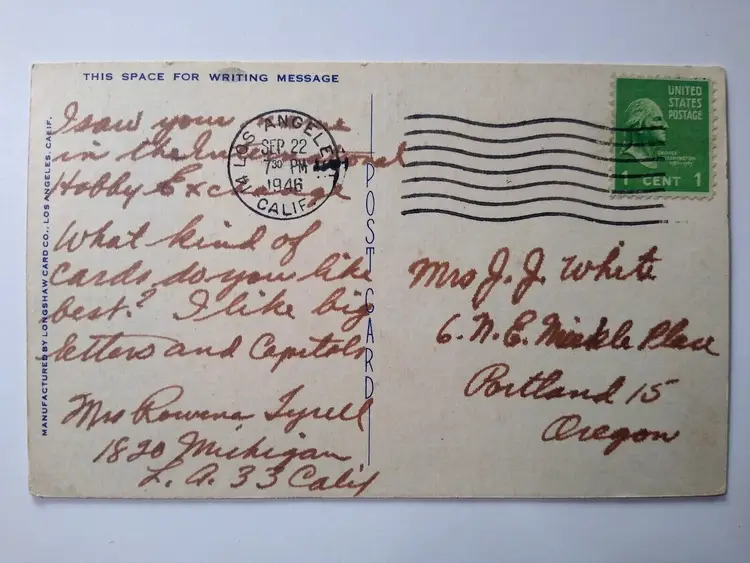 THIS SPACE FOR WRITING MESSAGE
I saw your name
in the International
Hobby Exchange
What kind of
cards do you like
best? I like big
letters and Capitols
Mrs Rowena Tyrell
1820 Michigan
L.A. 33 Calif
MANUFACTURED BY LONGSHAW CARD CO., LOS ANGELES, CALIF.
POST CARD
LOS ANGELES
SEP 22
7 30 PM
1946
CALIF.
UNITED
STATES
POSTAGE
1 CENT 1
Mrs J. J. White
6. N. E. Place
Portland 15
Oregon